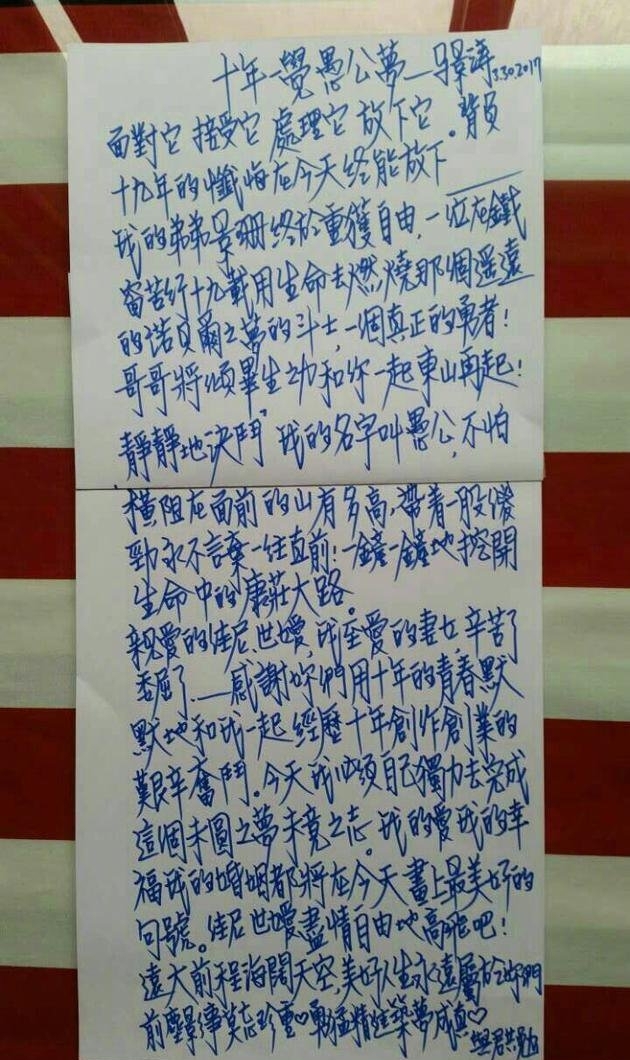 十年一覺愚公夢—馬景濤 3.30.2017
面對它 接受它 處理它 放下它。背負
十九年的懺悔在今天終能放下——
我的弟弟景珊終於重獲自由,一位在鐵
窗苦行十九載用生命去燃燒那個遥遠
的諾貝爾之夢的斗士,一個真正的勇者!
哥哥將傾畢生之功和你一起東山再起!
靜靜地決鬥,我的名字叫愚公,不怕
橫阻在面前的山有多高,帶着一股傻
勁永不言棄一往直前!一鏟一鏟地挖開
生命中的康莊大路。
親愛的佳尼,世嬡,我至愛的妻女,辛苦了
委屈了.——感謝妳們用十年的青春默
默地和我一起經歷十年創作創業的
艱辛奮鬥。今天我必須自己獨力去完成
這個未圓之夢未竟之志。我的愛我的幸
福我的婚姻都將在今天畫上最美好的
句號。佳尼世嬡盡情自由地高飛吧!
遠大前程海闊天空,美好人生永遠屬於妳們
前塵影事莫忘珍重♡勇猛精進築夢成真♡
與君共勉